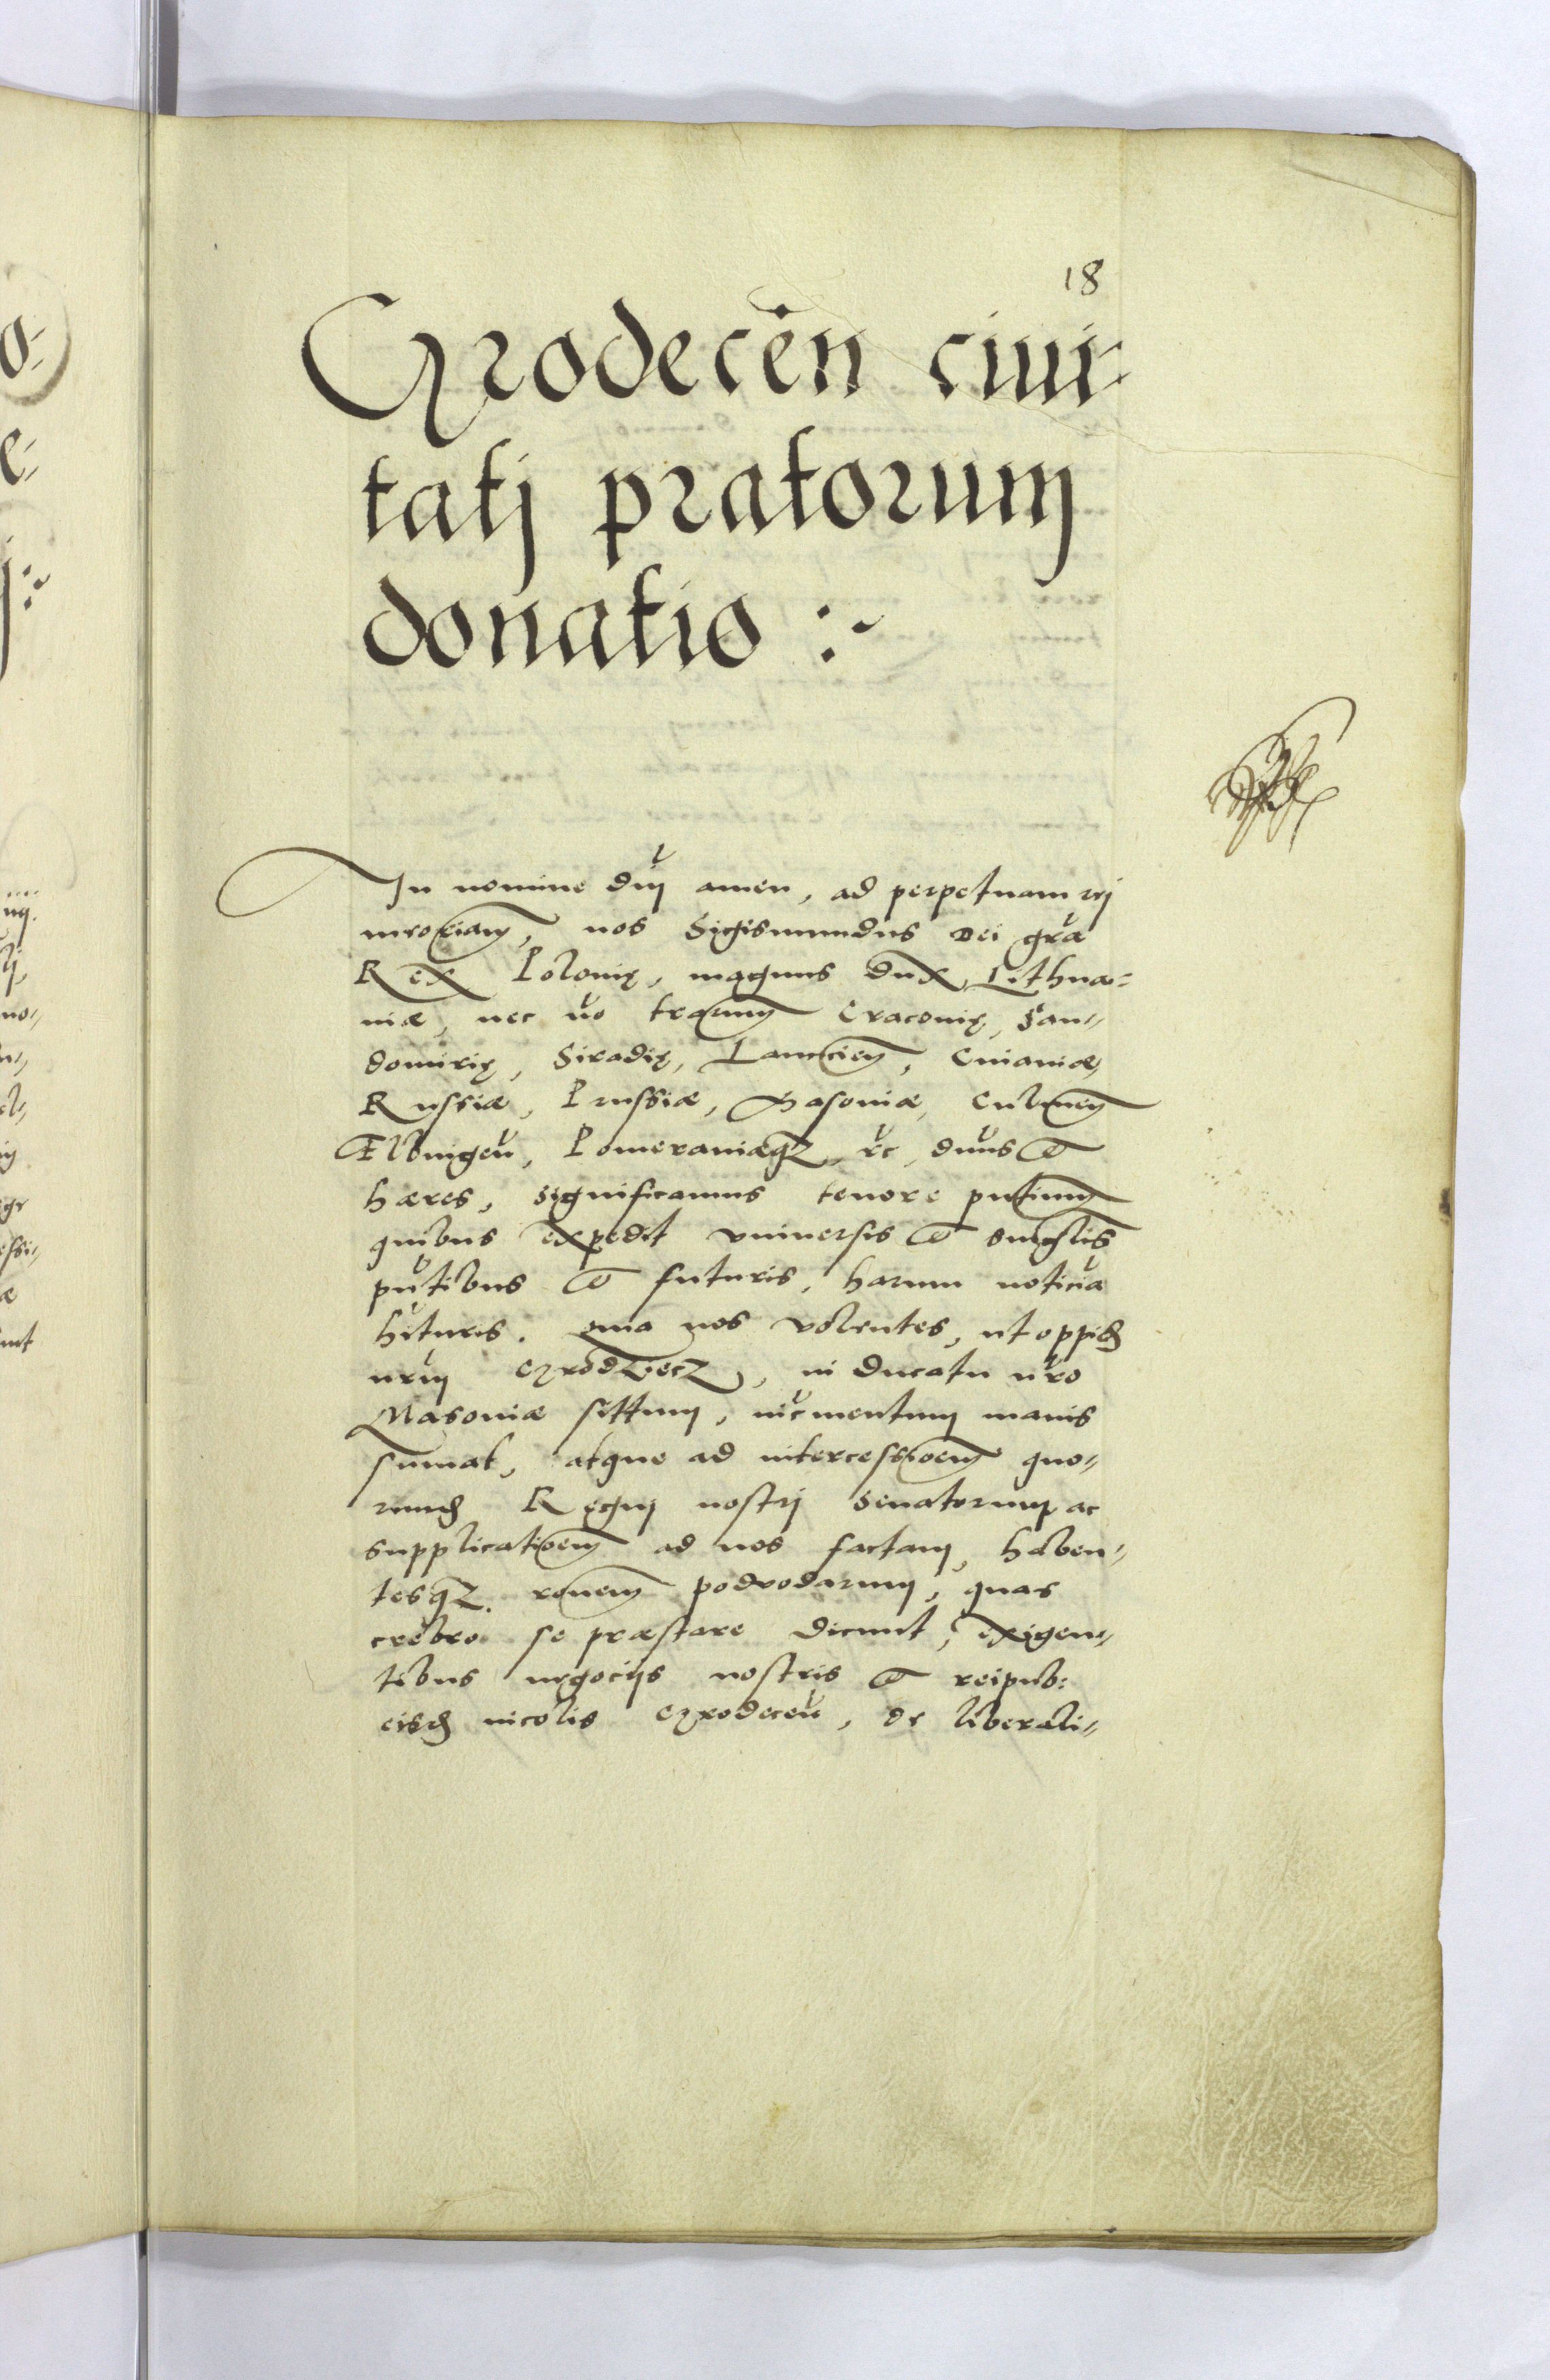 18
Grodecen̄ ciui-
tatj pratorum
donatio :~
In nomine dnj amen, ad perpetuam rej
mẽoriam, nos Sigismundus Dei gra
Rex Polonię, magnus dux Lithua=
niæ, nec no trarum Cracouię, San-
domirię, Siradię, Lanciciem, Cuiauiæ,
Russiæ, Prussiæ, Masouiæ, Culmem
Elbingen̄, Pomeraniæqȝ, rc, dnns et
hæres, significamus tenore pntium
quibus expedit vniuersis et singlis
pntibus et futuris, harum noticia
hituris. Quia nos volentes, ut oppid
nrum Grodziecz, in Ducatu nro
Masouiæ sittum, incmentum maius
sumat, atque ad intercessioem quo-
rund Regnj nostrj Senatorum ac
supplicatioem ad nos factam, haben-
tesqȝ ronem podvodarum, quas
crebro se præstare dicunt, exigen-
tibus negocijs nostris et reipub:
eisd incolis Grodecen̄, de liberali-